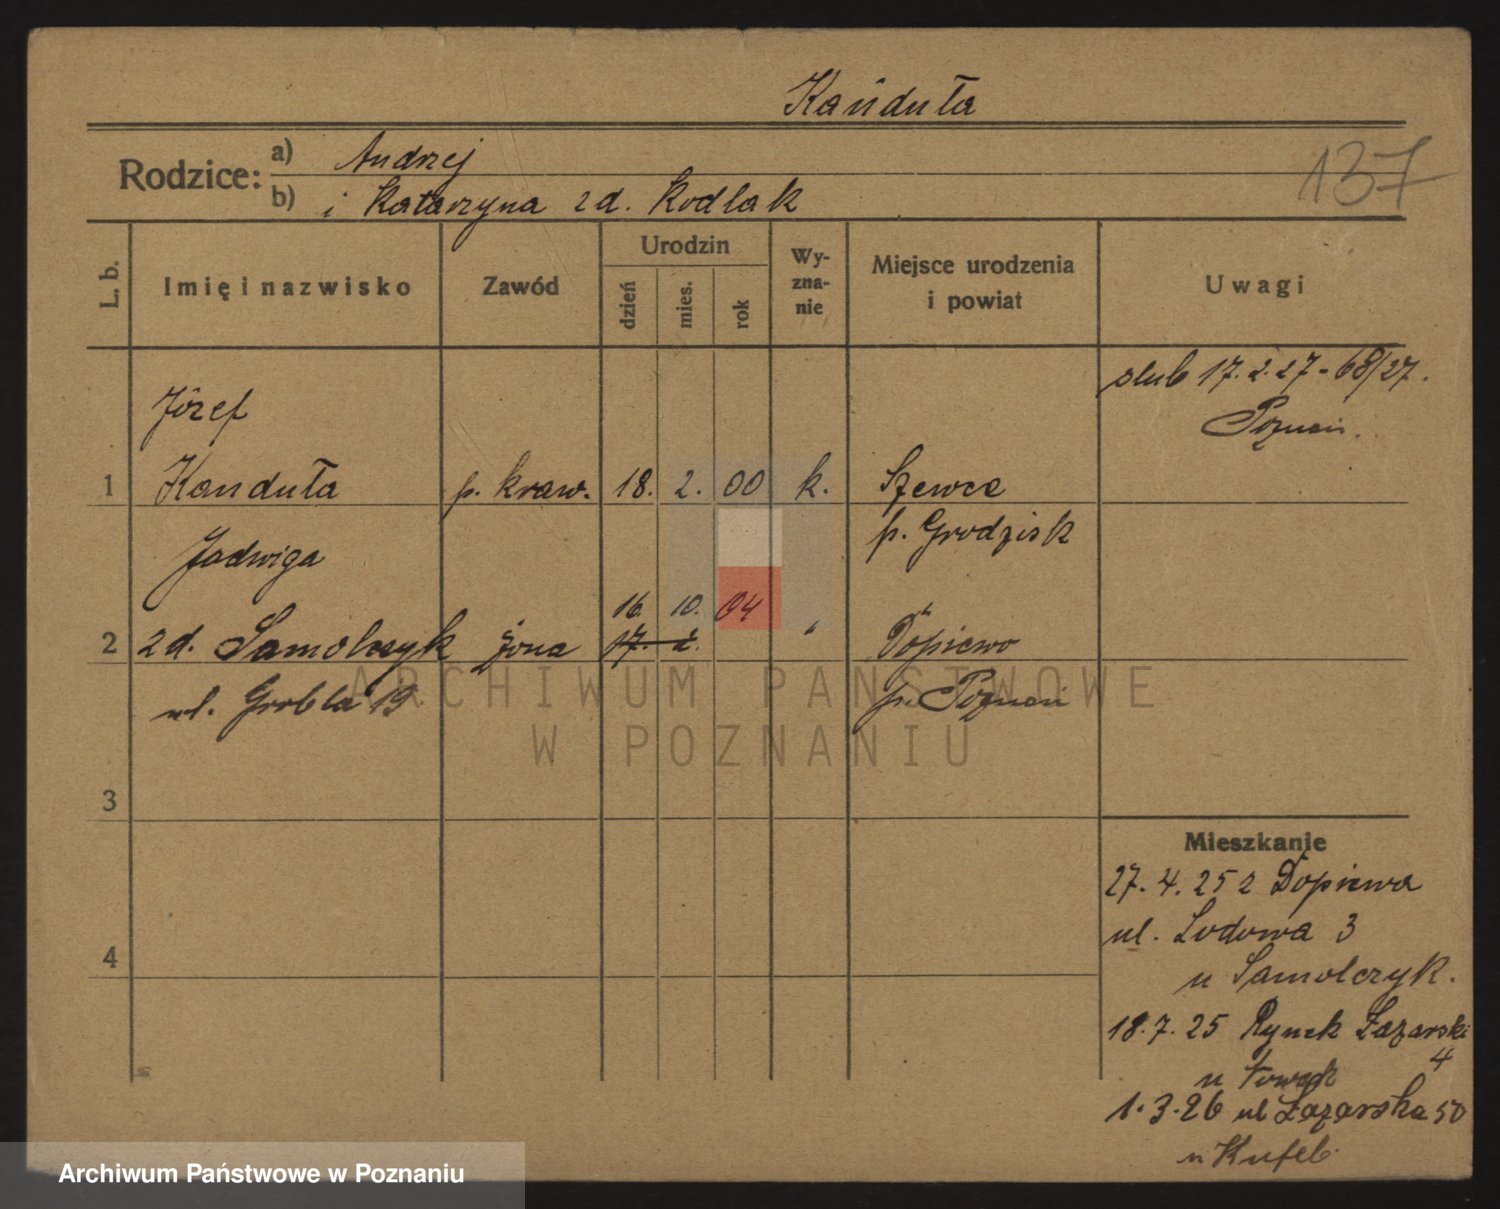 Kańduła
Rodzice:
a) Andrzej
b) i Katarzyna zd. Kodlak
137
L. b.
Imię i nazwisko
Zawód
Urodzin
dzień
mies.
rok
Wy-
zna-
nie
Miejsce urodzenia
i powiat
Uwagi
ślub 17. 2. 27 - 68/27.
Poznań.
Józef
1 Kanduła p. kraw. 18. 2. 00 k. Szewce
p. Grodzisk
Jadwiga
16. 10. 04
2 zd. Samolczyk żona 17. 2. " Dopiewo
ul. Grobla 19 p. Poznań
ARCHIWUM PAŃSTWOWE
W POZNANIU
3
4
Mieszkanie
27. 4. 25 z Dopiewa
ul. Lodowa 3
u Samolczyk.
18. 7. 25 Rynek Łazarski
4
u
1. 3. 26 ul Łazarska 50
u
Archiwum Państwowe w Poznaniu